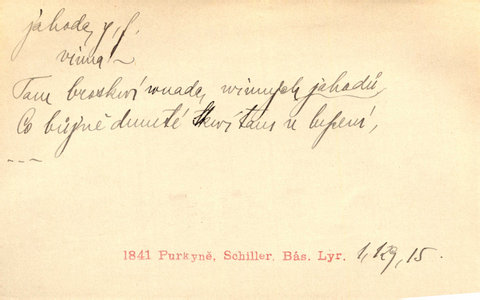 jahoda, y, f.
vinná ~
Tam broskví vnada, winných jahodů,
Co bůjně dmuté skví tam v lupení,
---
1841 Purkyně, Schiller, Bás. Lyr. 1,129,15.